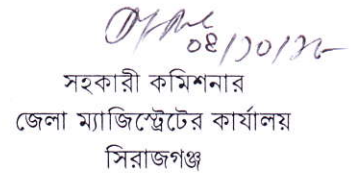 সহকারী কমিশনার
জেলা ম্যাজিস্ট্রেটের কার্যালয়
সিরাজগঞ্জ